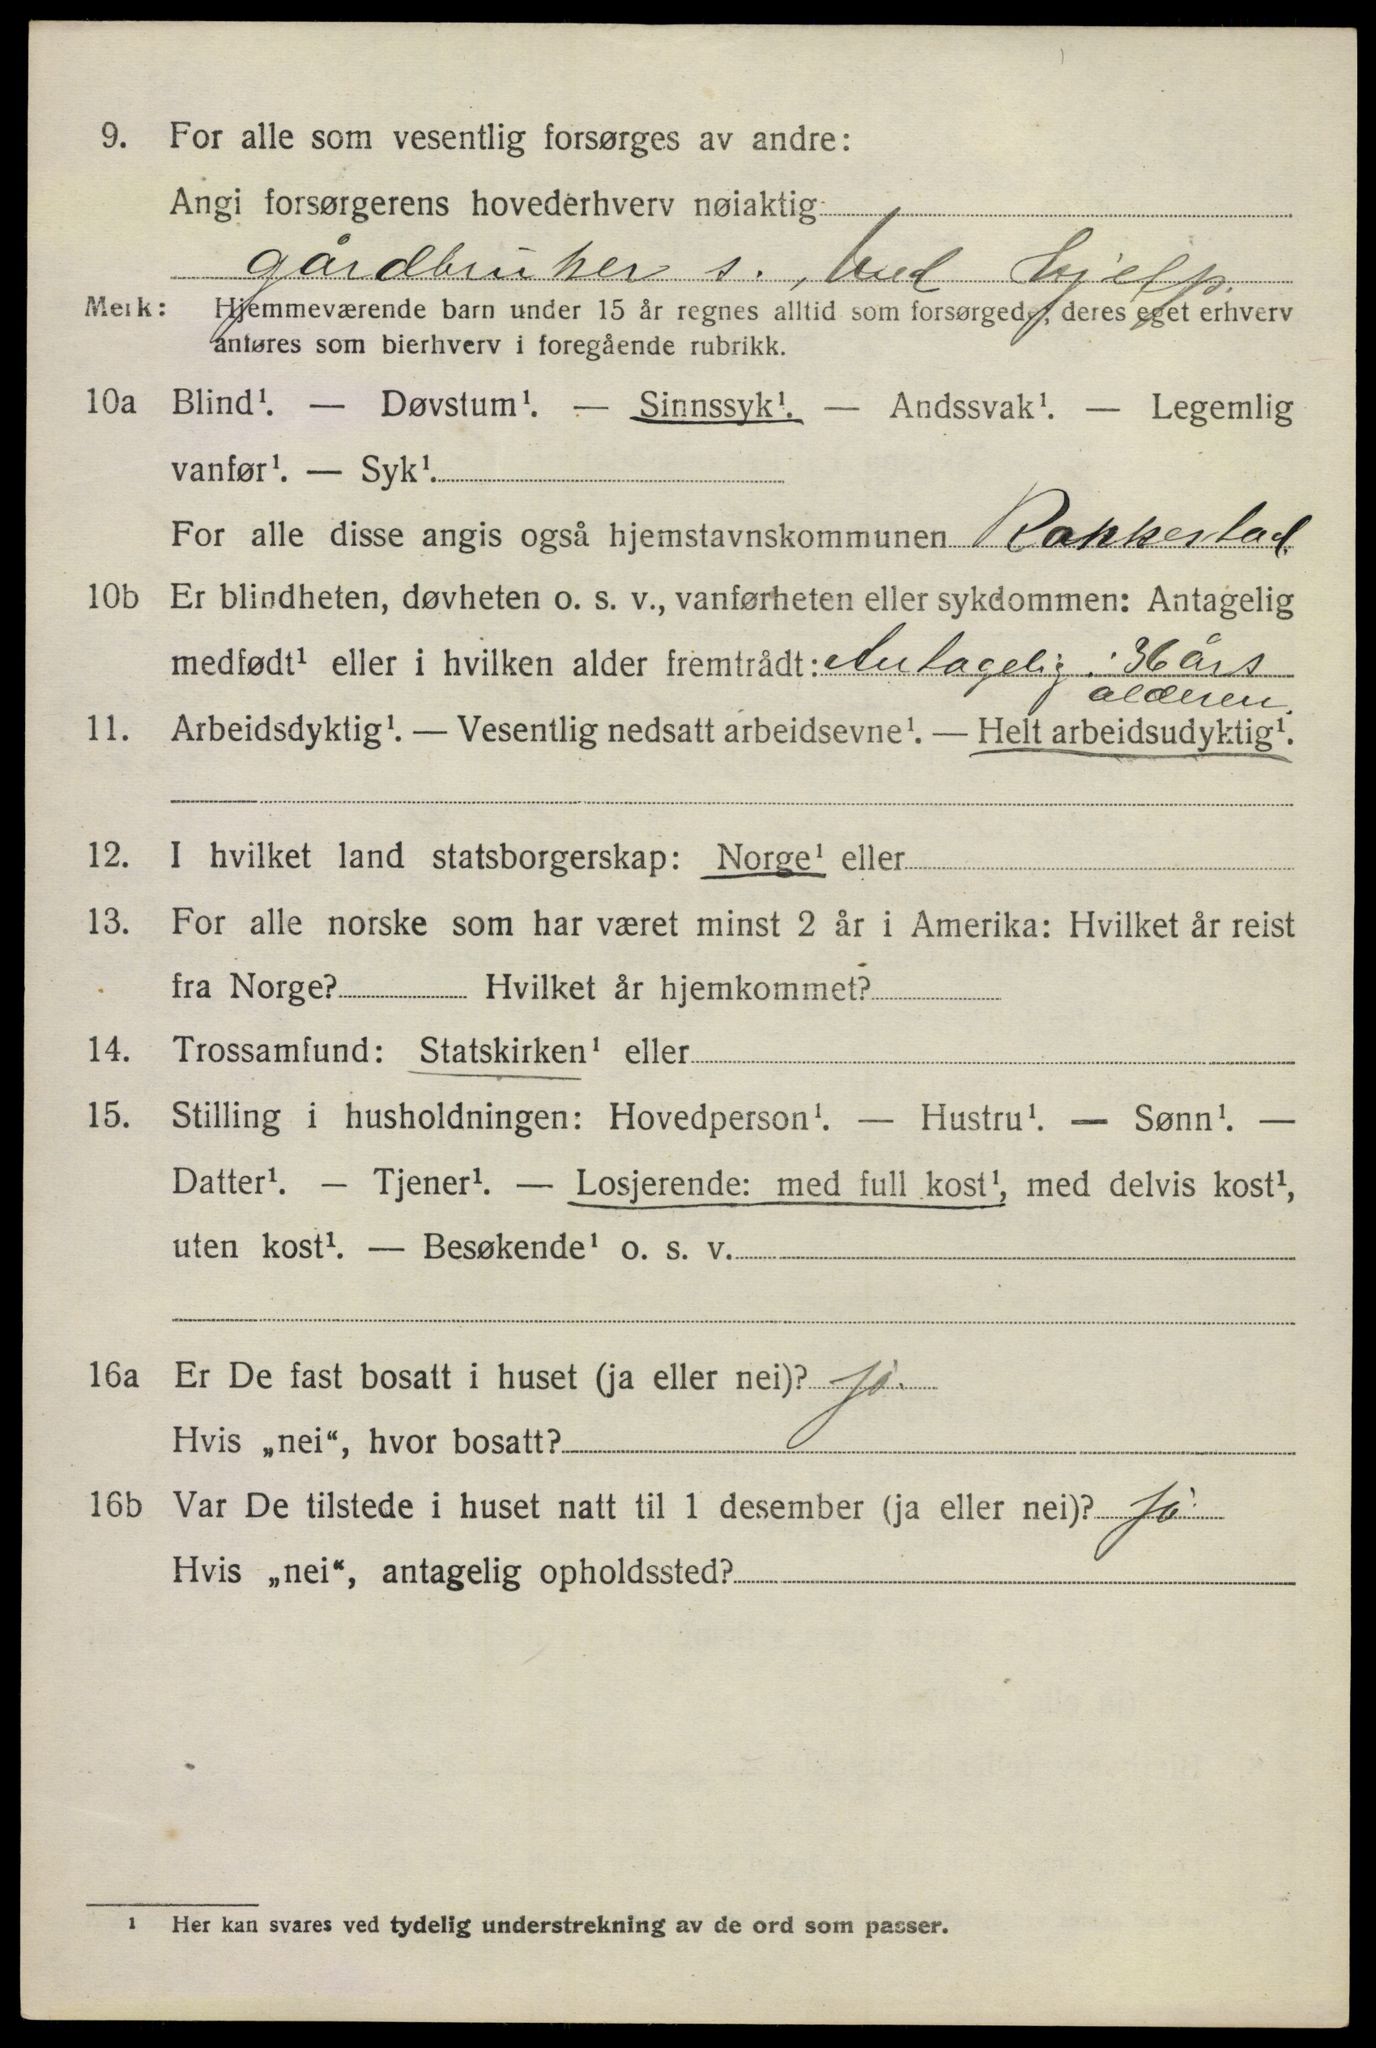 9. For alle som vesentlig forsørges av andre:
Angi forsørgerens hovederhverv nøiaktig
gårdbruker s. hjelp.
Merk: Hjemmeværende barn under 15 år regnes alltid som forsørgede, deres eget erhverv
anføres som bierhverv i foregående rubrikk.
10a Blind¹. — Døvstum¹. — Sinnssyk¹. — Andssvak¹. — Legemlig
vanfør¹. — Syk¹.
For alle disse angis også hjemstavnskommunen Rakkestad.
10b Er blindheten, døvheten o. s. v., vanførheten eller sykdommen: Antagelig
medfødt¹ eller i hvilken alder fremtrådt: Antagelig i 36 års
alderen.
11. Arbeidsdyktig¹. — Vesentlig nedsatt arbeidsevne¹. — Helt arbeidsudyktig¹.
12. I hvilket land statsborgerskap: Norge¹ eller
13. For alle norske som har været minst 2 år i Amerika: Hvilket år reist
fra Norge? Hvilket år hjemkommet?
14. Trossamfund: Statskirken¹ eller
15. Stilling i husholdningen: Hovedperson¹. — Hustru¹. — Sønn¹. —
Datter¹. — Tjener¹. — Losjerende: med full kost¹, med delvis kost¹,
uten kost¹. — Besøkende¹ o. s. v.
16a Er De fast bosatt i huset (ja eller nei)? ja.
Hvis „nei“, hvor bosatt?
16b Var De tilstede i huset natt til 1 desember (ja eller nei)? ja
Hvis „nei“, antagelig opholdssted?
¹ Her kan svares ved tydelig understrekning av de ord som passer.